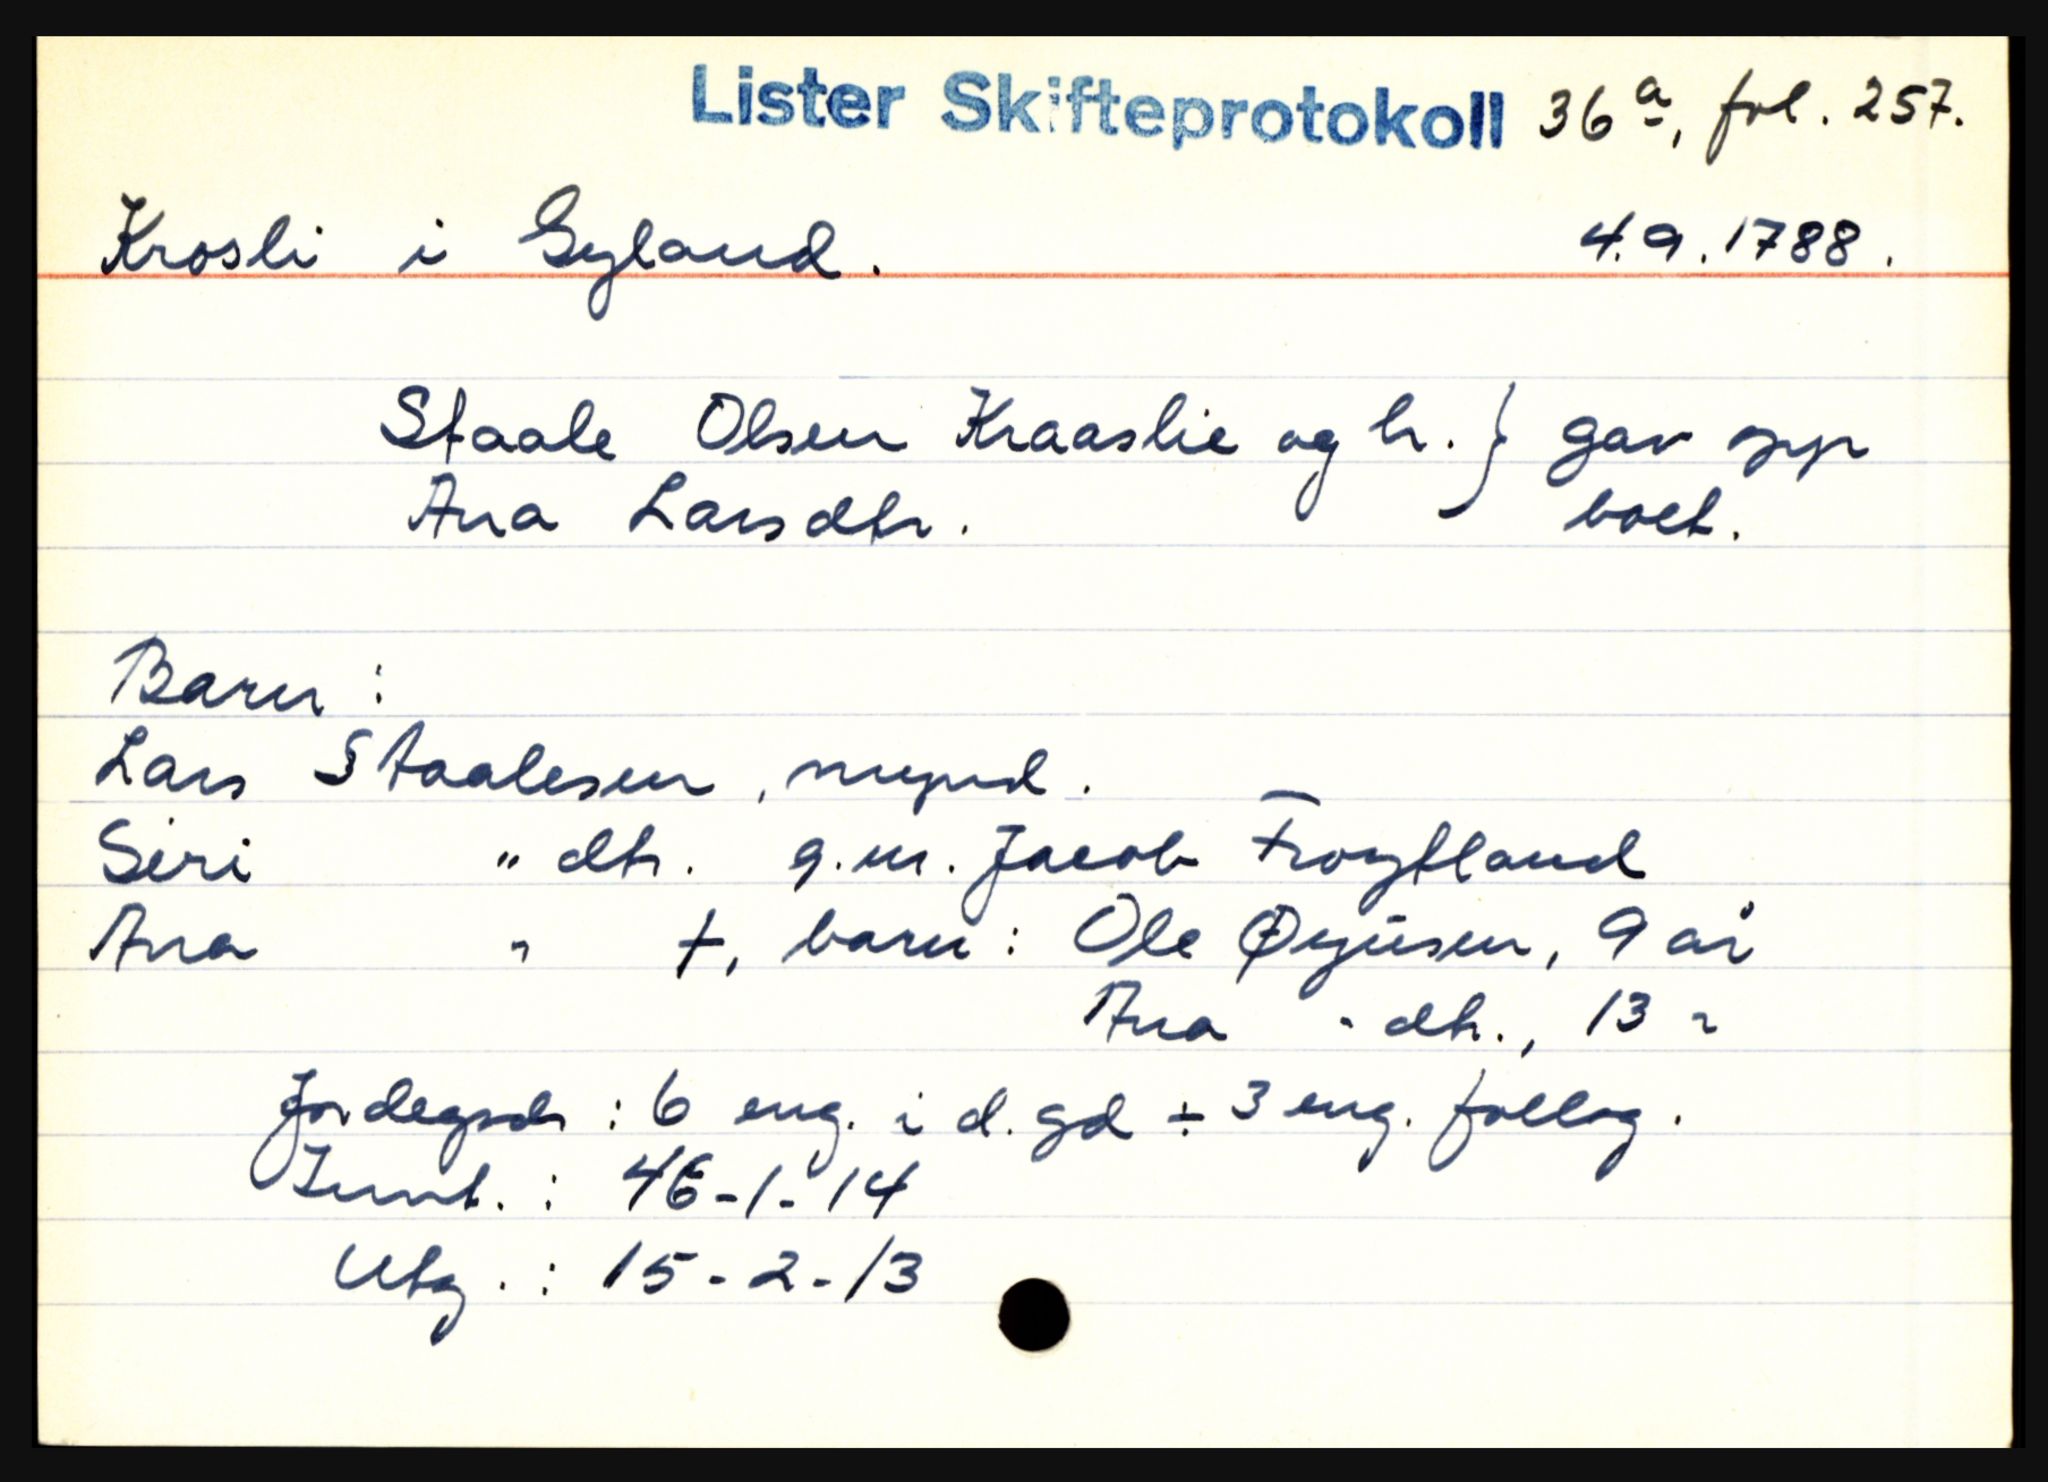 Lister Skifteprotokoll 36 a, fol. 257.
Krosli i Gyland. 4.9.1788.
Staale Olsen Kraaslie og h. } gav opp
Ana Larsdtr. boet.
Barn :
Lars Staalesen, mynd.
Siri " dtr. g.m. Jacob Frøytland
Ana " †, barn : Ole Øyusen, 9 år
Ana " dtr., 13 "
Jordegods : 6 eng. i d. gd ÷ 3 eng. follog.
Innt. : 46-1-14
Utg. : 15-2-13